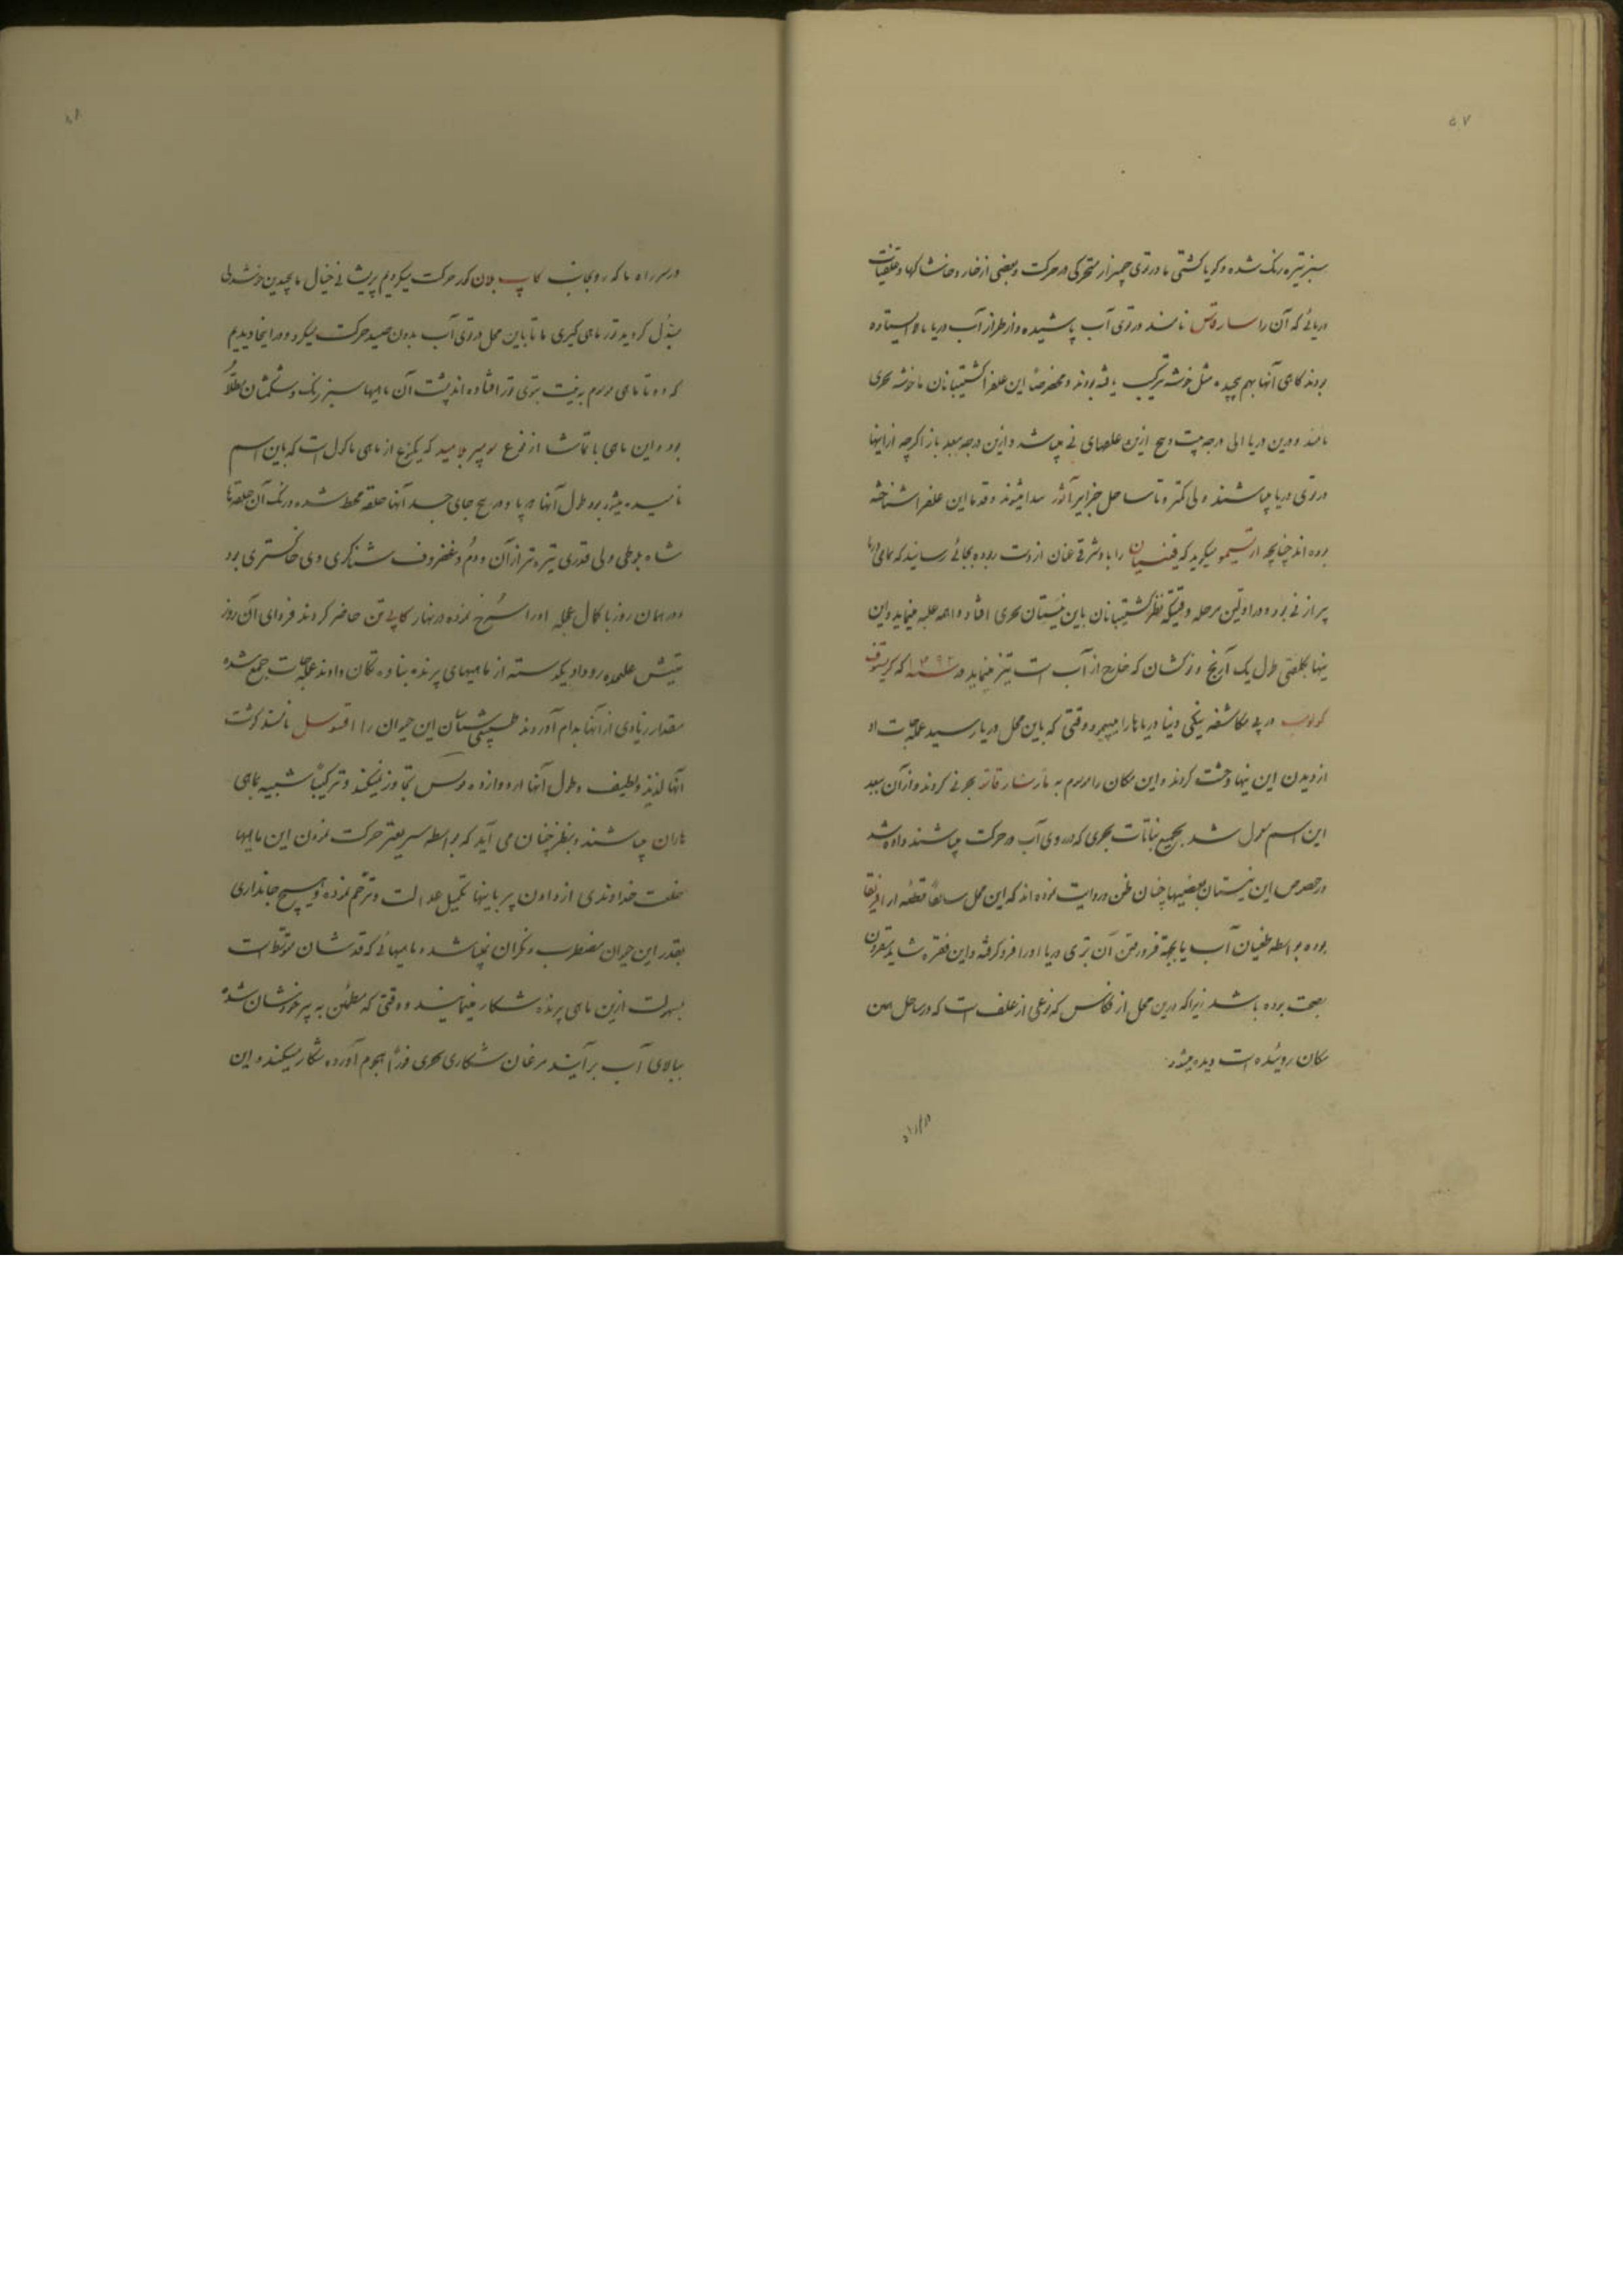 ۵۷
سبز تیره رنگ شده و گویا کشتی ما در روی چمنزار متحرکی در حرکت و بعضی از خار و خاشاکها و علفیات
دریائی که آن را سارقاس نامند در روی آب پاشیده و از طراز آب دریا بالا ایستاده
بودند گاهی آنها بهم پیچیده مثل خوشه ترکیب یافته بودند و مخصوصاً این علفرا کشتیبانان ما خوشه بحری
نامند و درین دریا الی درجه بیست و پنج ازین علفهای نی میباشد و ازین درجه ببعد باز اگرچه از اینها
در روی دریا میباشند ولی کمتر و تا ساحل جزایر آثور پیدا میشوند و قدما این علفرا شناخته
بوده‌اند چنانچه ارتسیمو میگوید که فینیسیان را باد شرقی عنان از دست ربوده بجائی رسانید که تمامی دریا
پر از نی بود و در اولین مرحله وقتیکه نظر کشتیبانان باین نیستان بحری افتاد واهمه غلبه مینماید و این
نیها بکلفتی طول یک آرنج و نوکشان که خارج از آب است تیز مینماید در سنه ۱۴۹۲ که کریستوف
کولومب در پی مکاشفه ینگی دنیا دریاها را میپیمود وقتی که باین محل دریا رسید عملجات او
از دیدن این نیها وحشت کردند و این مکان را موسوم به مار سارقاز بحرنی کردند و از آن ببعد
این اسم معمول شد بجمیع نباتات بحری که در روی آب در حرکت میباشند داده شد
در خصوص این نیستان بعضیها چنان ظن و روایت نموده‌اند که این محل سابقاً قطعه از افریقا
بوده بواسطه طغیان آب یا بجهة فرو رفتن آن بری دریا او را فرو گرفته و این فقره شاید مقرون
بصحت بوده باشد زیرا که درین محل از فکاس که نوعی از علف است که در ساحل همین
مکان روئیده است دیده میشود
۵۸
در سر راه ما که رو بجانب کاپ بلان که حرکت میکردیم پریشانی خیال ما بچندین خوشدلی
مبدل گردید تور ماهی گیری ما تا باین محل در روی آب بدون صید حرکت میکرد و در اینجا دیدیم
که دو تا ماهی موسوم به بنیت بتوی تور افتاده‌اند پشت آن ماهیها سبز رنگ و شکمشان مطلا
بود و این ماهی با تماشا از نوع سومپر نامید که یکنوع از ماهی ماکول است که باین اسم
نامیده میشود بود طول آنها دو پا و در پنج جای جسد آنها حلقه محیط شده و رنگ آن حلقه‌ها
شاه بلوطی ولی قدری تیره‌تر از آن و دم و غضروف شناگری وی خاکستری بود
در همان روز با کمال عجله او را سرخ نموده در نهار کاپی‌تن حاضر کردند فردای آن روز
عیش علیحده رو داد یکدسته از ماهیهای پرنده بناو تکان دادند عملجات جمع شده
مقدار زیادی از آنها بدام آوردند طبیعی شناسان این حیوان را اقسوسل نامند گوشت
آنها لذیذ و لطیف و طول آنها از دوازده پوس تجاوز نمیکند و ترکیباً شبیه بماهی
هاران میباشند و بنظر چنان می آید که بواسطه سریعتر حرکت نمودن این ماهیها
خلقت خداوندی از دادن پر باینها تکمیل عدالت و ترحم نموده و هیچ جانداری
بقدر این حیوان مضطرب و نگران نمیباشد و ماهیهائی که قدشان متوسط است
بسهولت ازین ماهی پرنده شکار مینمایند و وقتی که مطمئن به پر خودشان شده
ببالای آب برآیند مرغان شکاری بحری فوراً هجوم آورده شکار میکنند و این